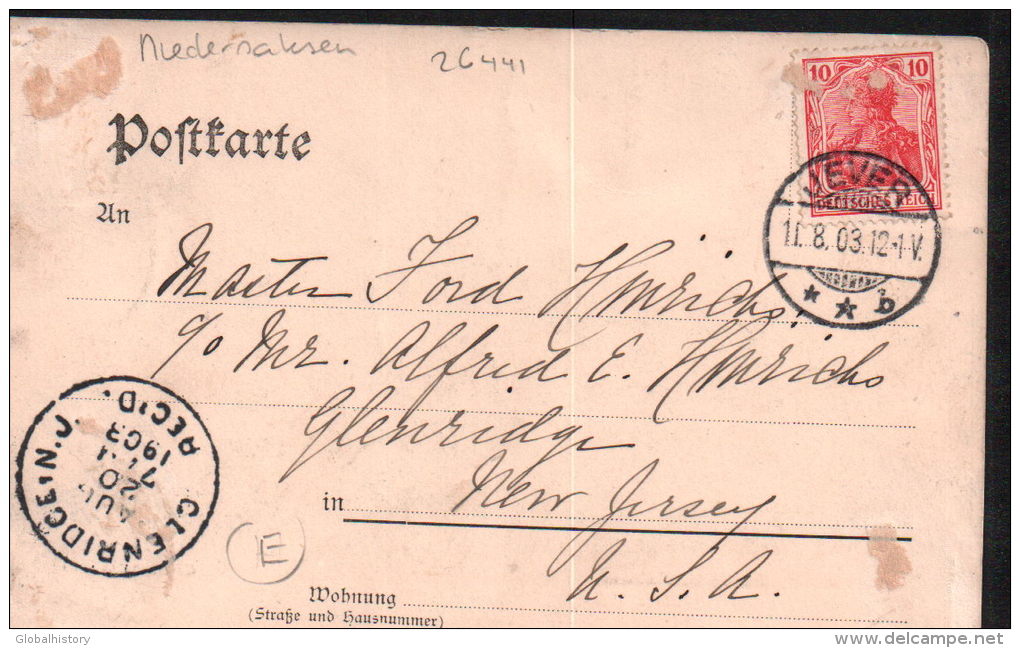 Niedersaksen
26441
10 10
DEUTSCHES REICH
JEVER
11.8.03.12-1V.
* * b
Postkarte
An
Master Ford Hinrichs,
c/o Mr. Alfred E. Hinrichs
Glenridge
in New Jersey
U. S. A.
GLENRIDGE, N.J.
REC'D.
AUG
20
1903
E
Wohnung
(Straße und Hausnummer)
Globalhistory
www.delcampe.net